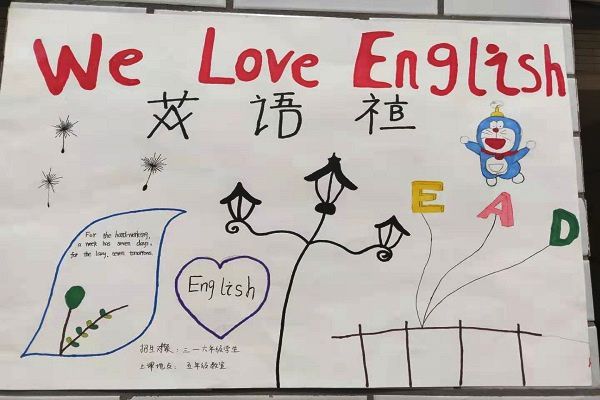 We Love English
英语社
E A D
For the hard-working,
a week has seven days,
for the lazy, seven tomorrows.
English
招生对象：三—六年级学生
上课地点：五年级教室